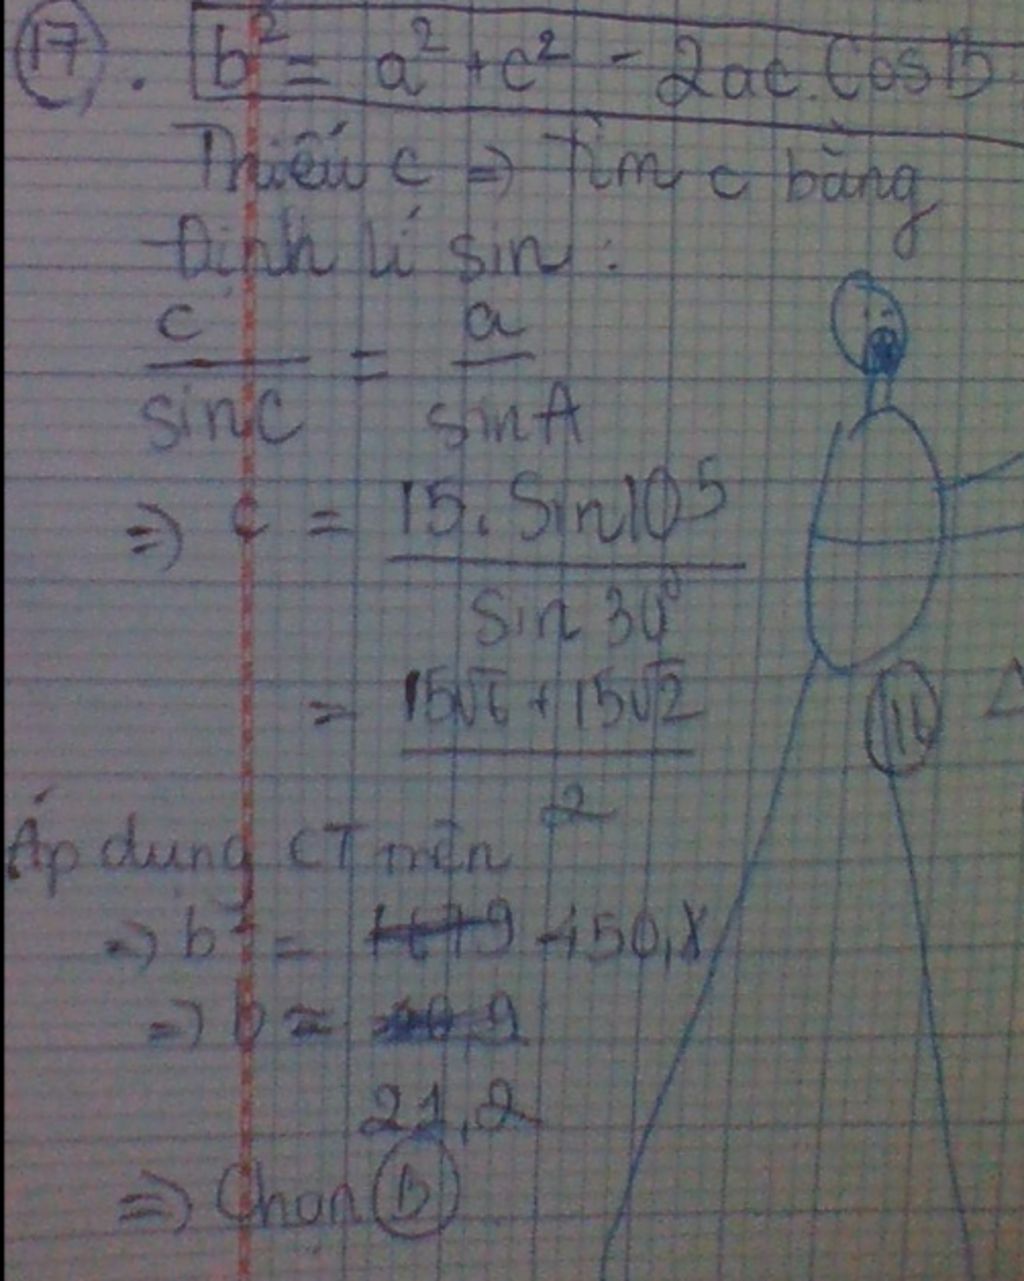 17. b² = a² + c² - 2ac.CosB
Thiếu c => Tìm c bằng
Định lí sin:
c/sinC = a/sinA
=> c = 15.Sin105/Sin30°
= 15√6 + 15√2/2
Áp dụng CT trên
=> b² = 450,
=> b ≈
21,2
=> Chọn B